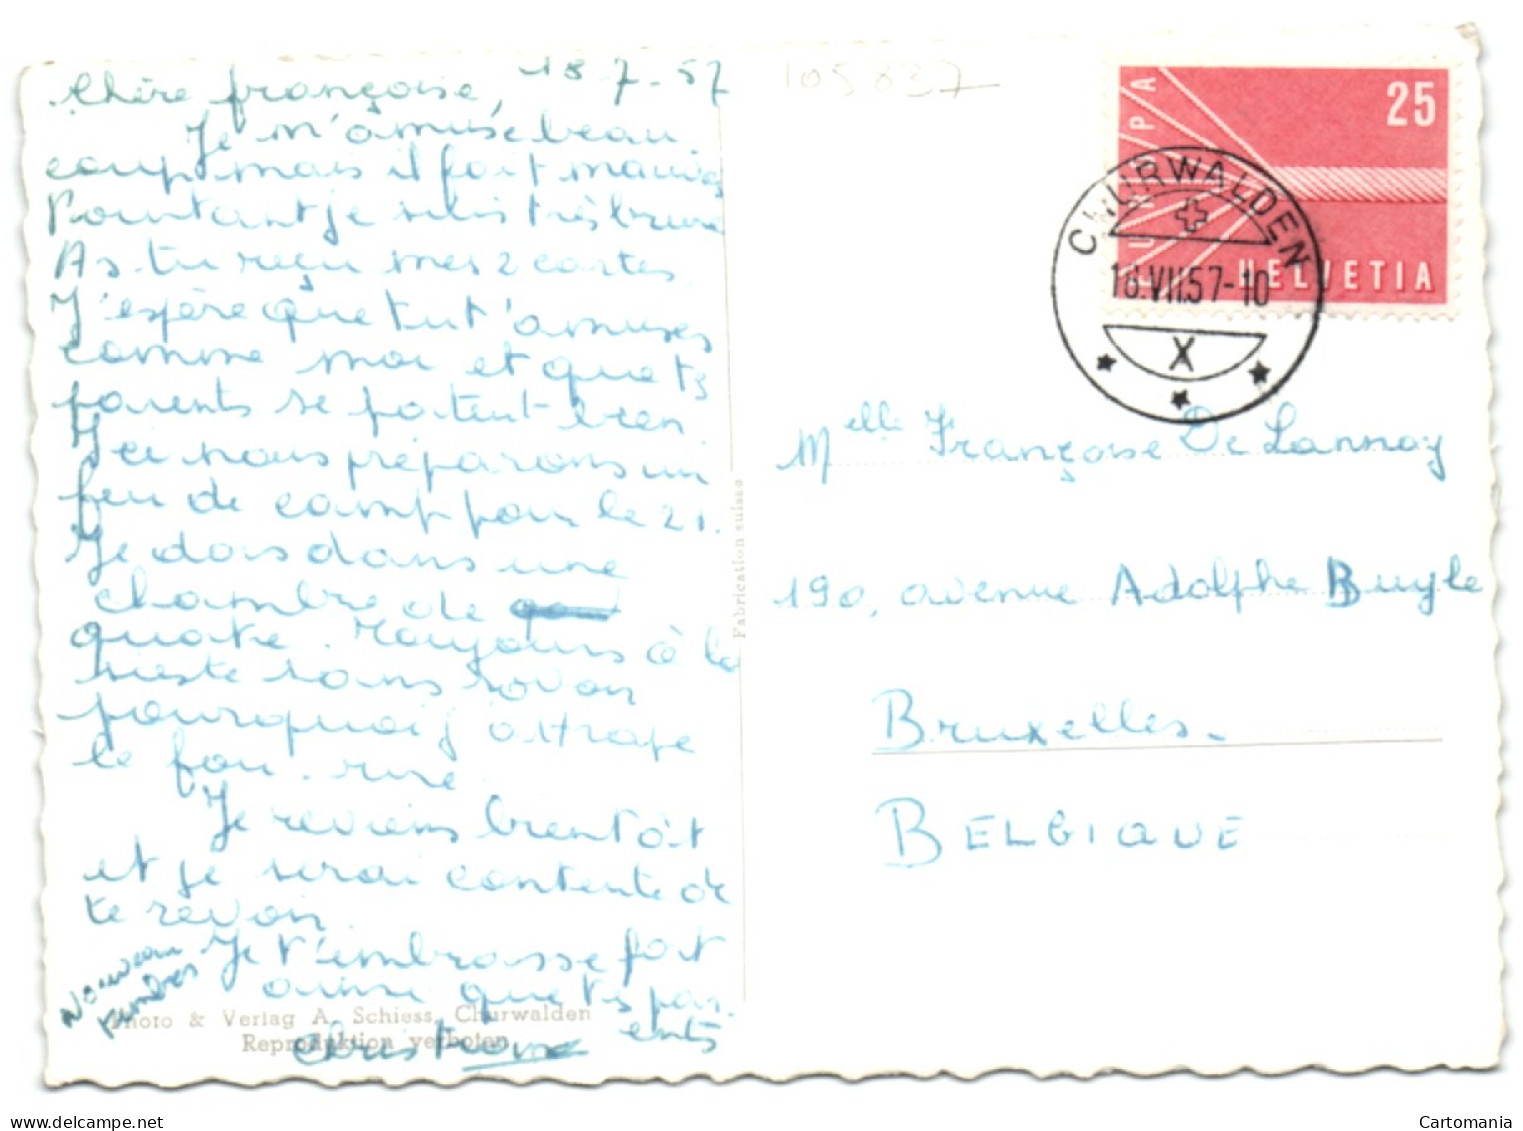 chère françoise, 18-7-57
Je m'amuse beau.
coup mais il fait mauvais
Pourtant je suis très brune
As-tu reçu mes 2 cartes
J'espère que tu t'amuses
comme moi et que ts
parents se portent bien.
Ici nous préparons un
feu de camp pour le 21.
Je dors dans une
chambre de
quatre. Toujours à la
sieste sans savoir
pourquoi j'attrape
le fou-rire
Je reviens bientôt
et je serai contente de
te revoir
Je t'embrasse fort
ainsi que ts par.
ents
Christiane
Nouveau
timbres
Photo & Verlag A. Schiess, Churwalden
Reproduktion verboten
Fabrication suisse
105837
EUROPA
25
HELVETIA
CHURWALDEN
18.VII.57-10
X
Melle Françoise De Lannoy
190, avenue Adolphe Buyle
Bruxelles.
BELGIQUE
Cartomania